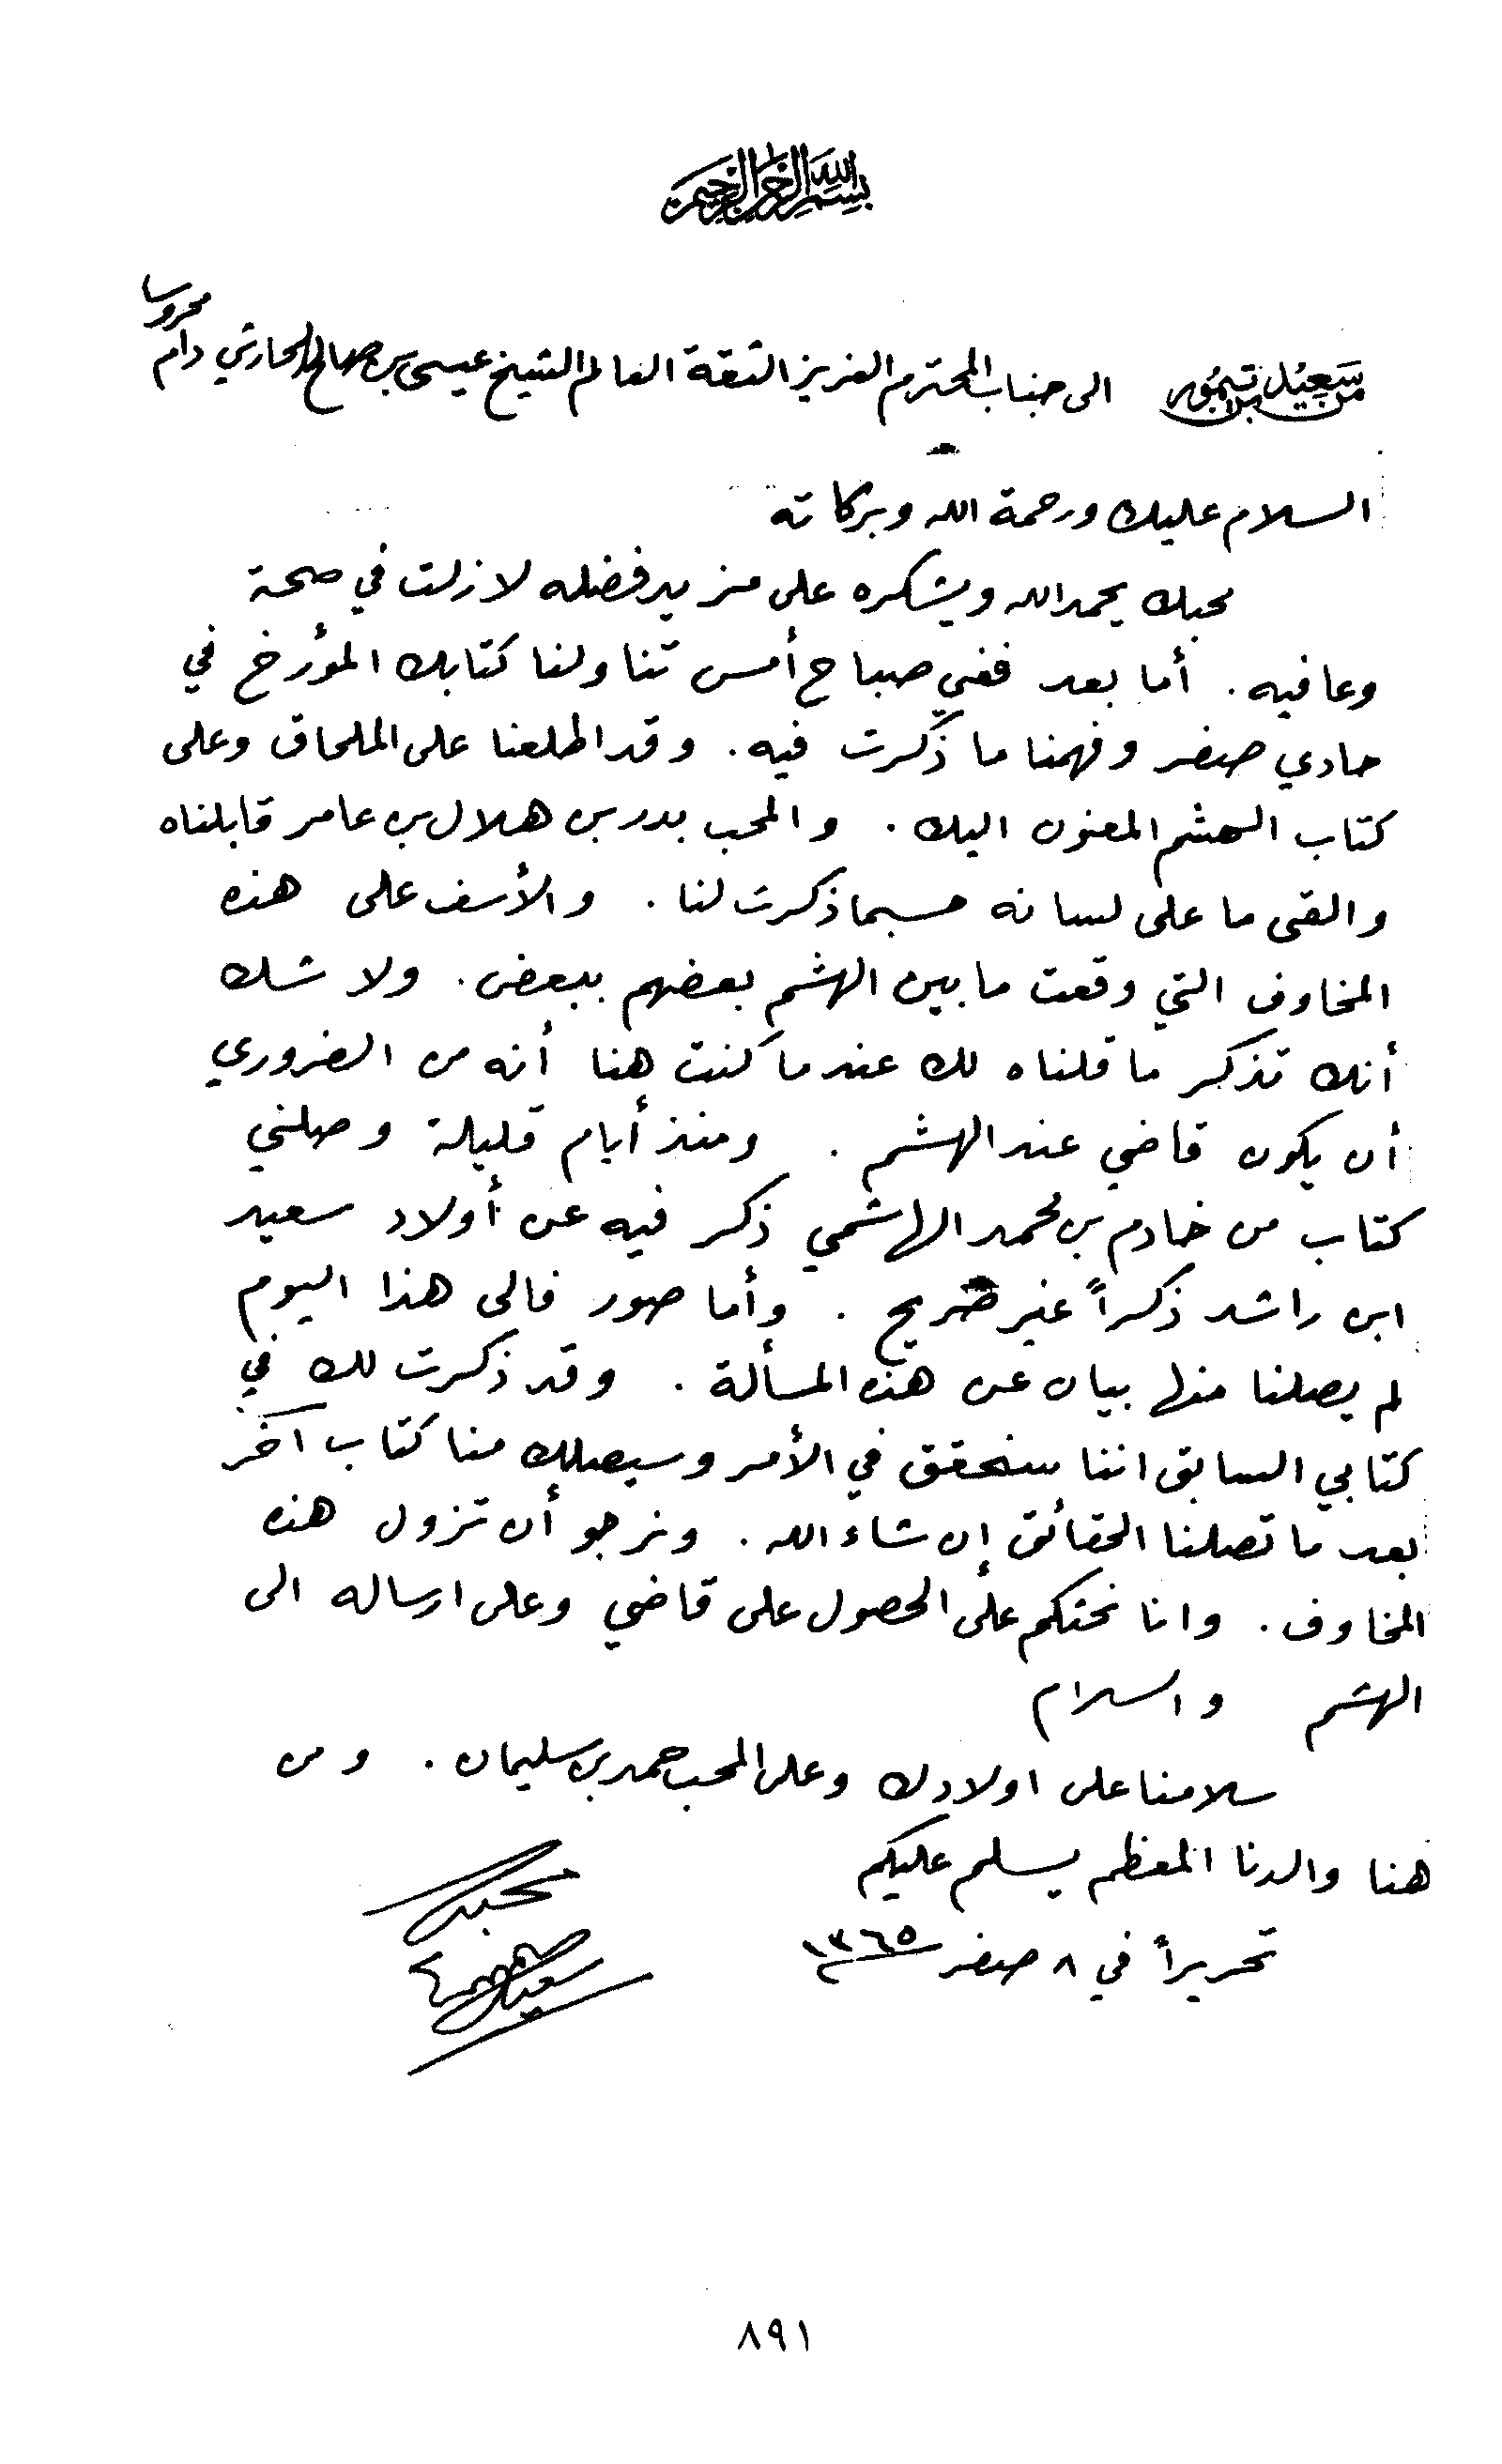 بسم الله الرحمن الرحيم
من سعيد بن تيمور الى جناب المحترم العزيز الثقة العالم الشيخ عيسى بن صالح الحارثي دام محروسا
السلام عليك ورحمة الله وبركاته
محبك يحمد الله ويشكره على مزيد فضله لا زلت في صحة
وعافيه . أما بعد ففي صباح أمس تناولنا كتابك المؤرخ في
حادي صفر وفهمنا ما ذكرت فيه . وقد اطلعنا على الملحاق وعلى
كتاب الهشم المعنون اليك . والمحب بدر بن هلال بن عامر قابلناه
والقى ما على لسانه حسبما ذكرت لنا . والأسف على هذه
المخاوف التي وقعت ما بين الهشم بعضهم ببعض . ولا شك
أنك تذكر ما قلناه لك عندما كنت هنا أنه من الضروري
أن يكون قاضي عند الهشم . ومنذ أيام قليلة وصلني
كتاب من خادم بن محمد الهاشمي ذكر فيه عن أولاد سعيد
ابن راشد ذكراً غير صريح . وأما صور فالى هذا اليوم
لم يصلنا منها بيان عن هذه المسألة . وقد ذكرت لك في
كتابي السابق اننا سنحقق في الأمر وسيصلك منا كتاب آخر
بعد ما تصلنا الحقائق إن شاء الله . ونرجو أن تزول هذه
المخاوف . وانا نحثكم على الحصول على قاضي وعلى ارساله الى
الهشم والسلام
سلامنا على اولادك وعلى المحب حمد بن سليمان . ومن
هنا والدنا المعظم يسلم عليكم
تحريراً في ٨ صفر ١٣٦٥
محبك
سعيد
٨٩١